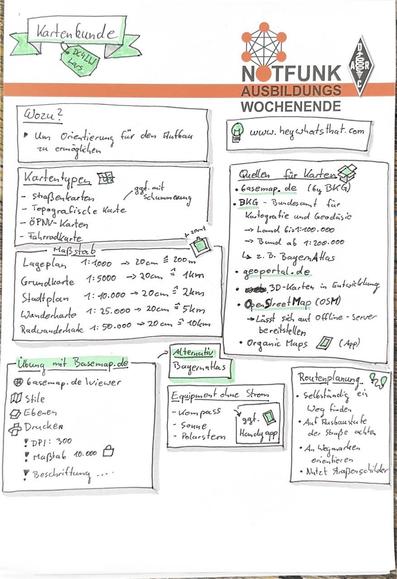 Kartenkunde
Lars
NOTFUNK
AUSBILDUNGS
WOCHENENDE
DARC
Wozu?
Um Orientierung für den Aufbau
zu ermöglichen
www.heywhatsthat.com
Kartentypen
- Straßenkarten
- Topografische Karte
- ÖPNV-Karten
- Fahrradkarte
ggf. mit
Schummerung
Quellen für Karten
• basemap.de (by BKG)
• BKG - Bundesamt für
Kartografie und Geodäsie
→ Land bis 1:100.000
→ Bund ab 1:200.000
↳ z.B. BayernAtlas
• geoportal.de
3D-Karten in Entwicklung
• OpenStreetMap (OSM)
→ Lässt sich auf Offline-Server
bereitstellen
• Organic Maps (App)
Maßstab
Lageplan 1:1000 → 20cm ≙ 200m
Grundkarte 1:5000 → 20cm ≙ 1km
Stadtplan 1:10.000 → 20cm ≙ 2km
Wanderkarte 1:25.000 → 20cm ≙ 5km
Radwanderkarte 1:50.000 → 20cm ≙ 10km
Übung mit Basemap.de
basemap.de Viewer
Stile
Ebenen
Drucken
! DPI: 300
! Maßstab 10.000
! Beschriftung ....
Alternativ
Bayernatlas
Equipment ohne Strom
- Kompass
- Sonne
- Polarstern
ggf.
Handyapp
Routenplanung
• Selbständig ein
Weg finden
• Auf Ausbaustufe
der Straße achten
• An Wegmarken
orientieren
• Nutzt Straßenschilder